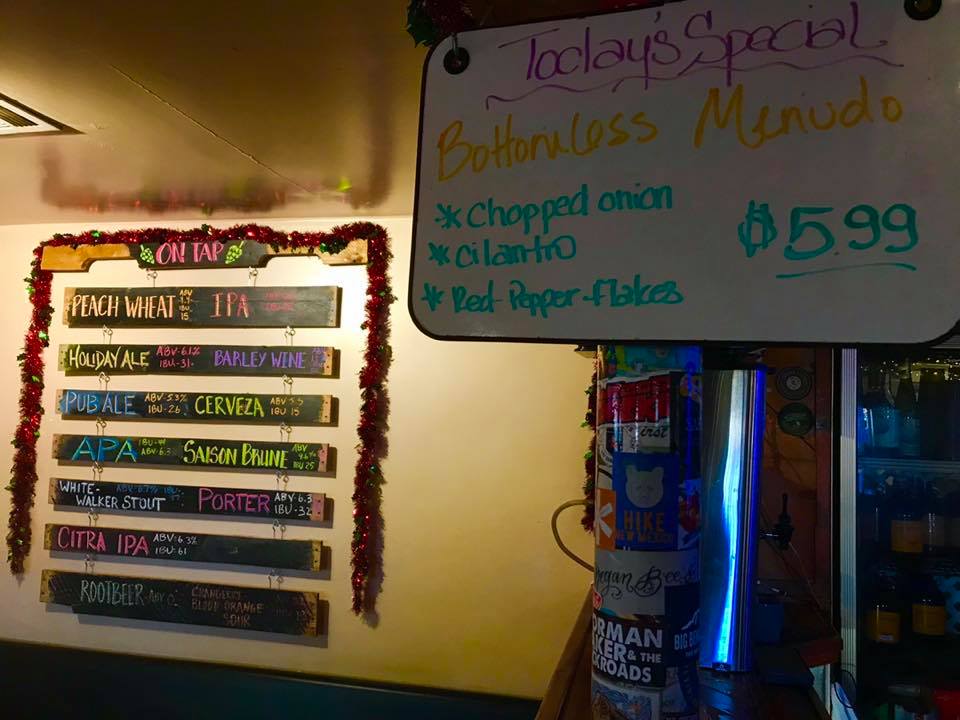 Today's Special
Bottomless Menudo
* Chopped onion
* cilantro
* Red-Pepper-flakes
$5.99
ON TAP
PEACH WHEAT ABV IBU 15 IPA
HOLIDAY ALE ABV-6.1% IBU-31- BARLEY WINE
PUB ALE ABV-5.3% IBU-26 CERVEZA ABV 5.5 IBU 15
APA IBU-44 ABV-6.3 SAISON BRUNE ABV IBU 25
WHITE-WALKER STOUT PORTER ABV-6.3 IBU-32
CITRA IPA ABV-6.3% IBU-61
ROOTBEER-ABV-0 CRANBERRY BLOOD ORANGE SOUR
irst
HIKE
NEW MEXICO
egan Bee
ORMAN
KER & THE
KROADS
BIG BE